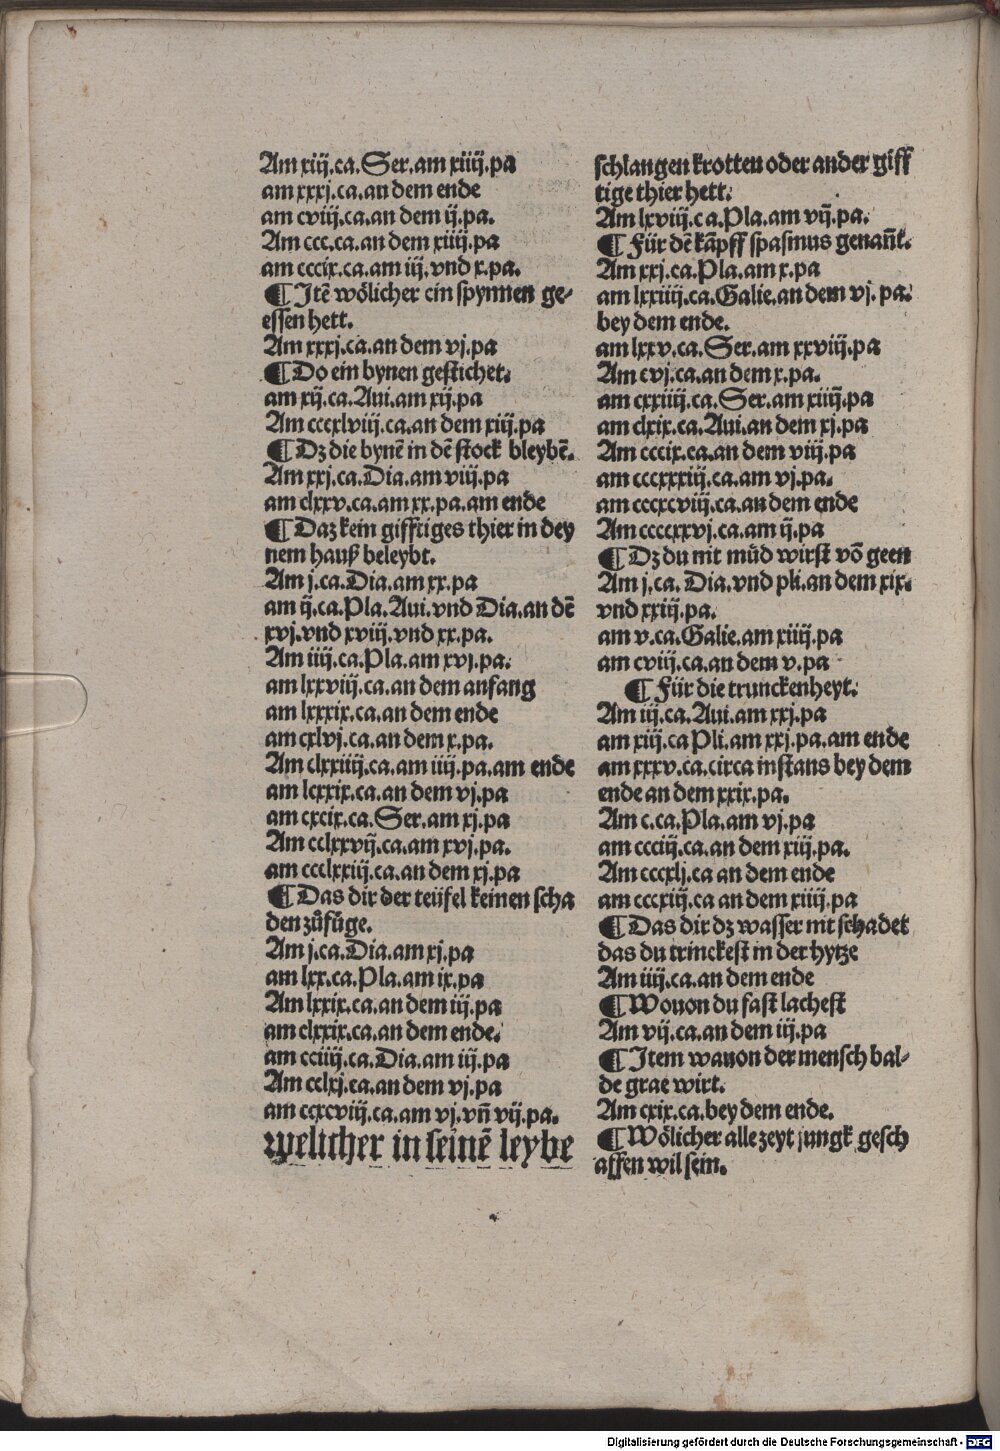 Am xiij.ca.Ser.am xiiij.pa
am xxxj.ca.an dem ende
am cviij.ca.an dem ij.pa.
Am ccc.ca.an dem xiiij.pa
am cccix.ca.am iij.vnd x.pa.
¶ Jtē woͤlicher ein spynnen ge-
essen hett.
Am xxxj.ca.an dem vj.pa
¶ Do ein bynen gestichet.
am xij.ca.Aui.am xij.pa
Am cccxlviij.ca.an dem xiij.pa
¶ Dz die bynē in dē stock bleybē.
Am xxj.ca.Dia.am viij.pa
am clxxv.ca.am xx.pa.am ende
¶ Daz kein gifftiges thier in dey
nem hauß beleybt.
Am j.ca.Dia.am xx.pa
am ij.ca.Pla.Aui.vnd Dia.an dē
xvj.vnd xviij.vnd xx.pa.
Am iiij.ca.Pla.am xvj.pa.
am lxxviij.ca.an dem anfang
am lxxxix.ca.an dem ende
am cxlvj.ca.an dem x.pa.
Am clxxiiij.ca.am iiij.pa.am ende
am lcxxix.ca.an dem vj.pa
am cxcix.ca.Ser.am xj.pa
Am cclxxvij.ca.am xvj.pa.
am ccclxxiij.ca.an dem xj.pa
¶ Das dir der teüfel keinen scha
den zuͦfuͤge.
Am j.ca.Dia.am xj.pa
am lxx.ca.Pla.am ix.pa
Am lxxix.ca.an dem iij.pa
am clxxix.ca.an dem ende.
am cciiij.ca.Dia.am iij.pa
Am cclxj.ca.an dem vj.pa
am ccxcviij.ca.am vj.vn̄ vij.pa.
welicher in seinē leybe
schlangen krotten oder ander giff
tige thier hett.
Am lxviij.ca.Pla.am vij.pa.
¶ Für dē kāpff spasmus genan̄t.
Am xxj.ca.Pla.am x.pa
am lxxiiij.ca.Galie.an dem vj.pa.
bey dem ende.
am lxxv.ca.Ser.am xxviij.pa
Am cvj.ca.an dem x.pa.
am cxxiiij.ca.Ser.am xiiij.pa
am clxix.ca.Aui.an dem xj.pa
Am cccix.ca.an dem viij.pa
am cccxxxiij.ca.am vj.pa.
am cccxcviij.ca.an dem ende
Am ccccxxvj.ca.am ij.pa
¶ Dz du nit muͤd wirst vō geen
Am j.ca.Dia.vnd pli.an dem xix.
vnd xxiij.pa.
am v.ca.Galie.am xiiij.pa
am cviij.ca.an dem v.pa
¶ Für die trunckenheyt.
Am iij.ca.Aui.am xxj.pa
am xiij.ca Pli.am xxj.pa.am ende
am xxxv.ca.circa instans bey dem
ende an dem xxix.pa.
Am c.ca.Pla.am vj.pa
am ccciij.ca.an dem xiij.pa.
Am cccxlj.ca an dem ende
am cccxiij.ca an dem xiiij.pa
¶ Das dir dz wasser nit schadet
das du trinckest in der hytze
Am iiij.ca.an dem ende
¶ Wouon du fast lachest
Am vij.ca.an dem iij.pa
¶ Jtem wauon der mensch bal-
de grae wirt.
Am cxix.ca.bey dem ende.
¶ Woͤlicher alle zeyt jungk gesch
affen wil sein.
Digitalisierung gefördert durch die Deutsche Forschungsgemeinschaft - DFG